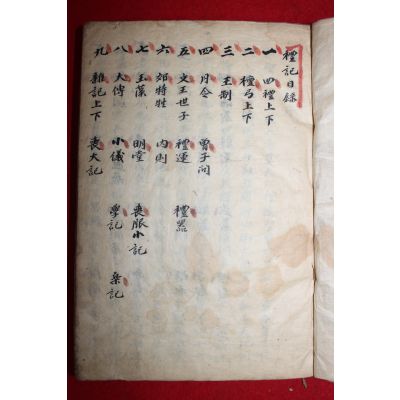 禮記目錄
一 四禮上下
二 檀弓上下
三 王制
四 月令 曾子問
五 文王世子 禮運 禮器
六 郊特牲 內則
七 玉藻 明堂 喪服小記
八 大傳 小儀 學記 楽記
九 雜記上下 喪大記